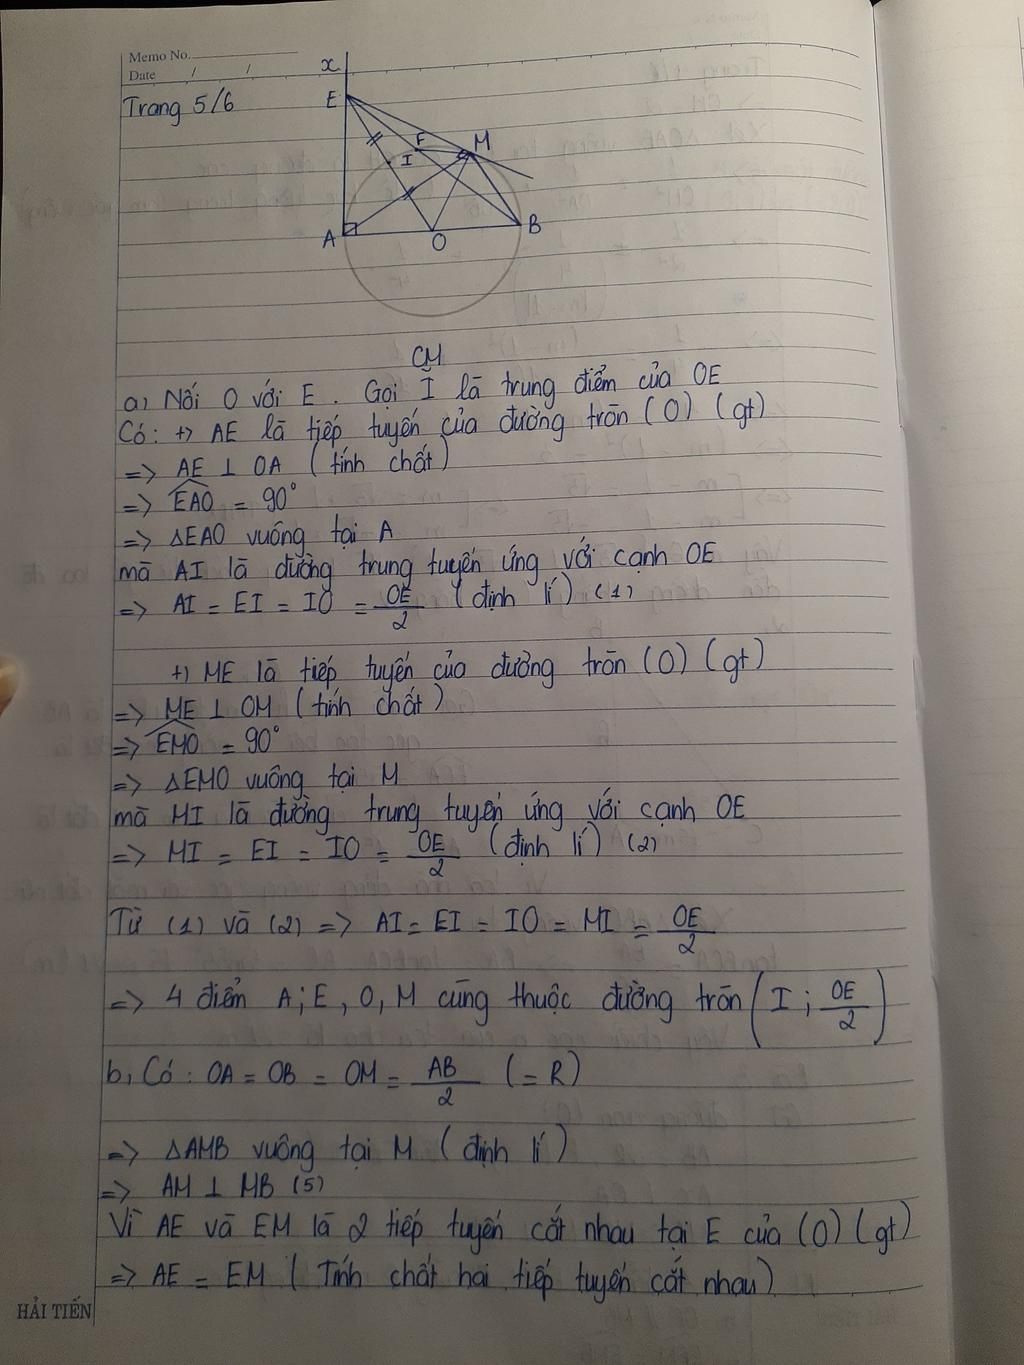 Memo No.
Date / /
Trang 5/6
x
E
F
M
I
A
O
B
CM
a, Nối O với E. Gọi I là trung điểm của OE
Có: +) AE là tiếp tuyến của đường tròn (O) (gt)
=> AE ⊥ OA (tính chất)
=> \widehat{EAO} = 90°
=> ΔEAO vuông tại A
mà AI là đường trung tuyến ứng với cạnh OE
=> AI = EI = IO = \frac{OE}{2} (định lí) (1)
+) ME là tiếp tuyến của đường tròn (O) (gt)
=> ME ⊥ OM (tính chất)
=> \widehat{EMO} = 90°
=> ΔEMO vuông tại M
mà MI là đường trung tuyến ứng với cạnh OE
=> MI = EI = IO = \frac{OE}{2} (định lí) (2)
Từ (1) và (2) => AI = EI = IO = MI = \frac{OE}{2}
=> 4 điểm A; E, O, M cùng thuộc đường tròn (I; \frac{OE}{2})
b, Có: OA = OB = OM = \frac{AB}{2} (= R)
=> ΔAMB vuông tại M (định lí)
=> AM ⊥ MB (5)
Vì AE và EM là 2 tiếp tuyến cắt nhau tại E của (O) (gt)
=> AE = EM (Tính chất hai tiếp tuyến cắt nhau)
HẢI TIẾN